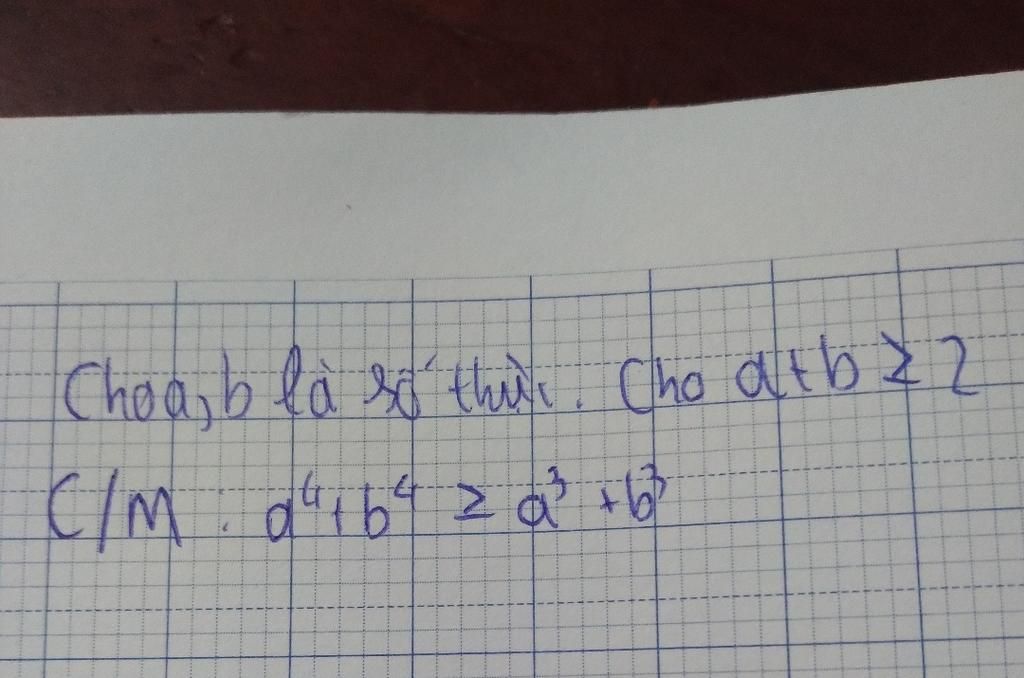 Cho a, b là số thực. Cho a + b ≥ 2
C/M : a⁴ + b⁴ ≥ a³ + b³